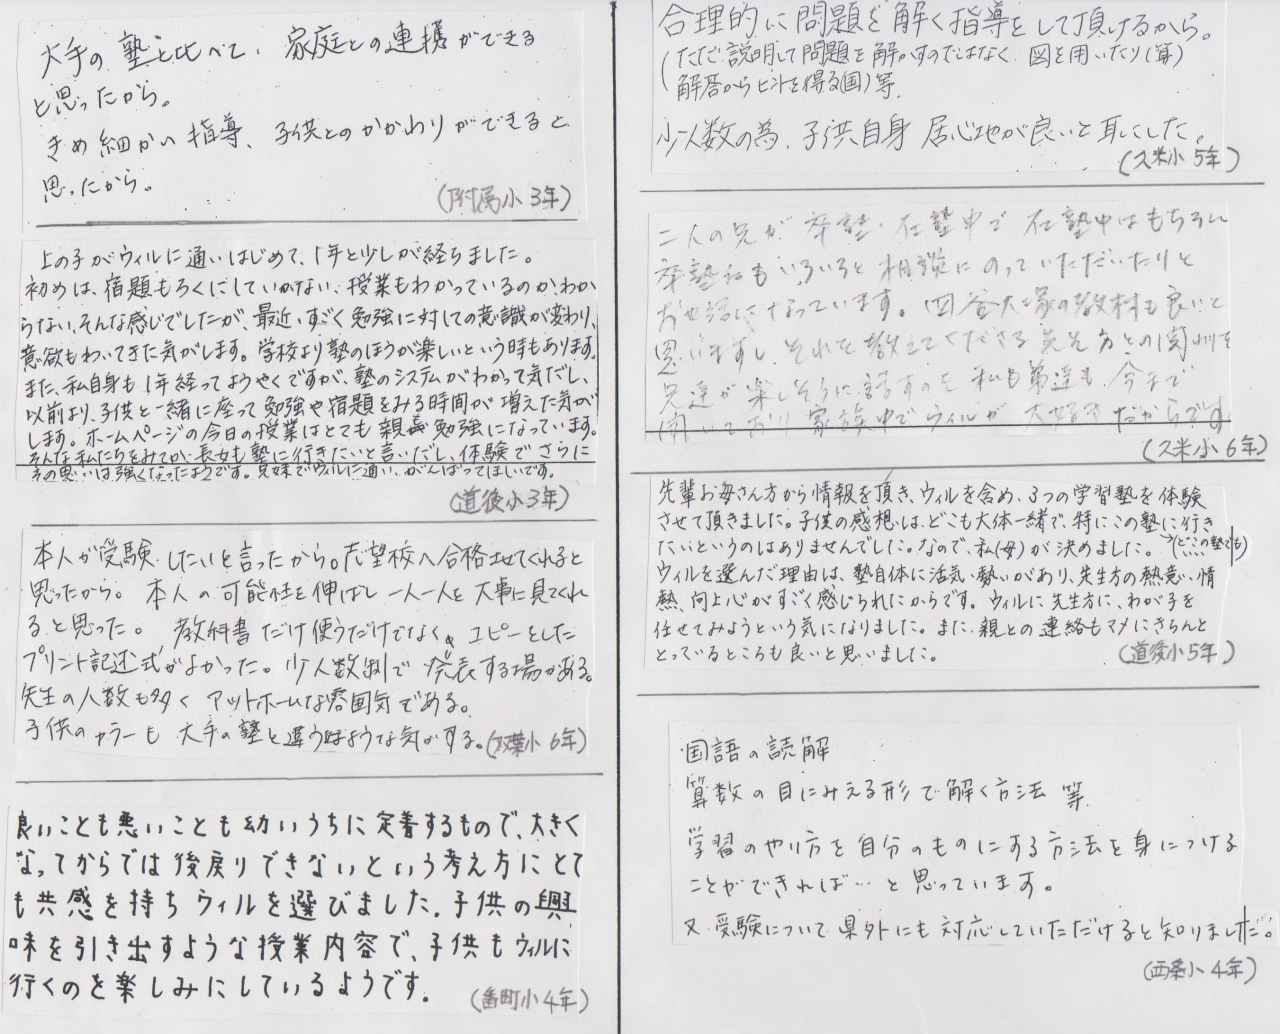 大手の塾と比べて、家庭との連携ができる
と思ったから。
きめ細かい指導、子供とのかかわりができると
思ったから。
(附属小3年)
上の子がウィルに通いはじめて、1年と少しが経ちました。
初めは、宿題もろくにしていかない、授業もわかっているのかわか
らない、そんな感じでしたが、最近、すごく勉強に対しての意識が変わり、
意欲もわいてきた気がします。学校より塾のほうが楽しいという時もあります。
また、私自身も1年経ってようやくですが、塾のシステムがわかって気だし、
以前より、子供と一緒に座って勉強や宿題をみる時間が増えた気が
します。ホームページの今日の授業はとても親義勉強になっています。
そんな私たちをみてか、長女も塾に行きたいと言いだし、体験でさらに
その思いは強くなったようです。兄妹でウィルに通い、がんばってほしいです。
(道後小3年)
本人が受験したいと言ったから。志望校へ合格させてくれると
思ったから。本人の可能性を伸ばし一人一人を大事に見てくれ
ると思った。教科書だけ使うだけでなく、コピーをした
プリント記述式がよかった。少人数制で発表する場がある。
先生の人数も多く アットホームな雰囲気である。
子供のカラーも大手の塾と違うような気がする。(双葉小6年)
良いことも悪いことも幼いうちに定着するもので、大きく
なってからでは後戻りできないという考え方にとて
も共感を持ちウィルを選びました。子供の興
味を引き出すような授業内容で、子供もウィルに
行くのを楽しみにしているようです。
(番町小4年)
合理的に問題を解く指導をして頂けるから。
(ただ説明して問題を解かすのではなく、図を用いたり(算)
解答からヒントを得る(国)等。
少人数の為、子供自身 居心地が良いと耳にした。
(久米小5年)
二人の兄が卒塾、在塾中で 在塾中はもちろん
卒塾後もいろいろと相談にのっていただいたりと
お世話になっています。四谷大塚の教材も良いと
思いますし それを教えてくださる先生方との関わりを
兄達が楽しそうに話すのを 私も弟達も、今まで
聞いており 家族中でウィルが 大好き だからです
(久米小6年)
先輩お母さん方から情報を頂き、ウィルを含め、3つの学習塾を体験
させて頂きました。子供の感想は、どこも大体一緒で、特にこの塾に行き
たいというのはありませんでした。なので、私(母)が決めました。→(どこの塾でも)
ウィルを選んだ理由は、塾自体に活気、勢いがあり、先生方の熱意、情
熱、向上心がすごく感じられたからです。ウィルに先生方に、わが子を
任せてみようという気になりました。また、親との連絡もマメにきちんと
とっているところも良いと思いました。
(道後小5年)
国語の読解
算数の目にみえる形で解く方法 等
学習のやり方を自分のものにする方法を身につける
ことができれば…と思っています。
又、受験について、県外にも対応していただけると知りました。
(西条小4年)